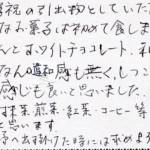 祝の引出物としていただ
なお菓子は初めて食しま
んことホワイトチョコレート、和
なんの違和感も無く、しつこ
感じも良いと思いました
抹茶、煎茶・紅茶・コーヒー等
と思います
へ出掛けた時には求めよう